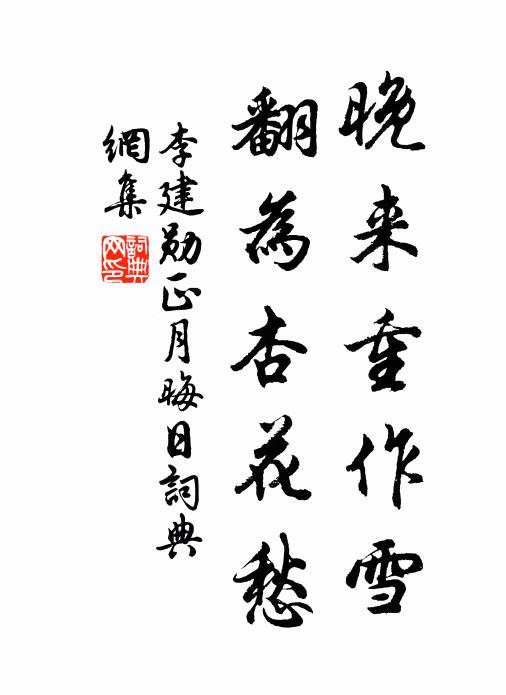 晚来重作雪
翻為杏花愁
李建勋正月晦日詞典
網集
詞典网印